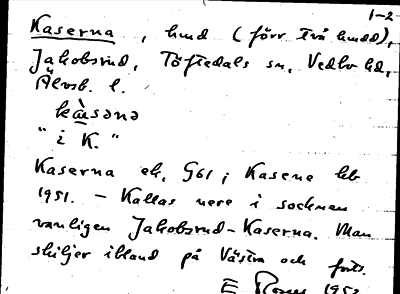 1-2
Kaserna, hmd (förr två hmdd),
Jakobsrud, Töftedals sn, Vedbo hd,
Älvsb. l.
kàsənə
" i K. "
Kaserna ek. G61; Kasene hb
1951. – Kallas nere i socknen
vanligen Jakobsrud-Kaserna. Man
skiljer ibland på Västra och forts.
E 1952